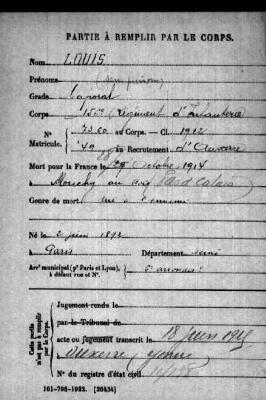 PARTIE À REMPLIR PAR LE CORPS.
Nom LOUIS
Prénoms (sans prénom)
Grade Caporal
Corps 155e Régiment d'Infanterie
N° Matricule. 7300 au Corps. — Cl. 1912
49 au Recrutement d'Auxerre
Mort pour la France le Octobre 1914
à au Pas de Calais
Genre de mort tué à l'ennemi
Né le 2 juin 1892
à Paris Département Seine
Arrt municipal (pr Paris et Lyon), à défaut rue et N°. arrondt
Cette partie n'est pas à remplir par le Corps.
Jugement rendu le
par le Tribunal de
acte ou jugement transcrit le 18 juin
Auxerre Yonne
N° du registre d'état civil
101-708-1922. [26434]